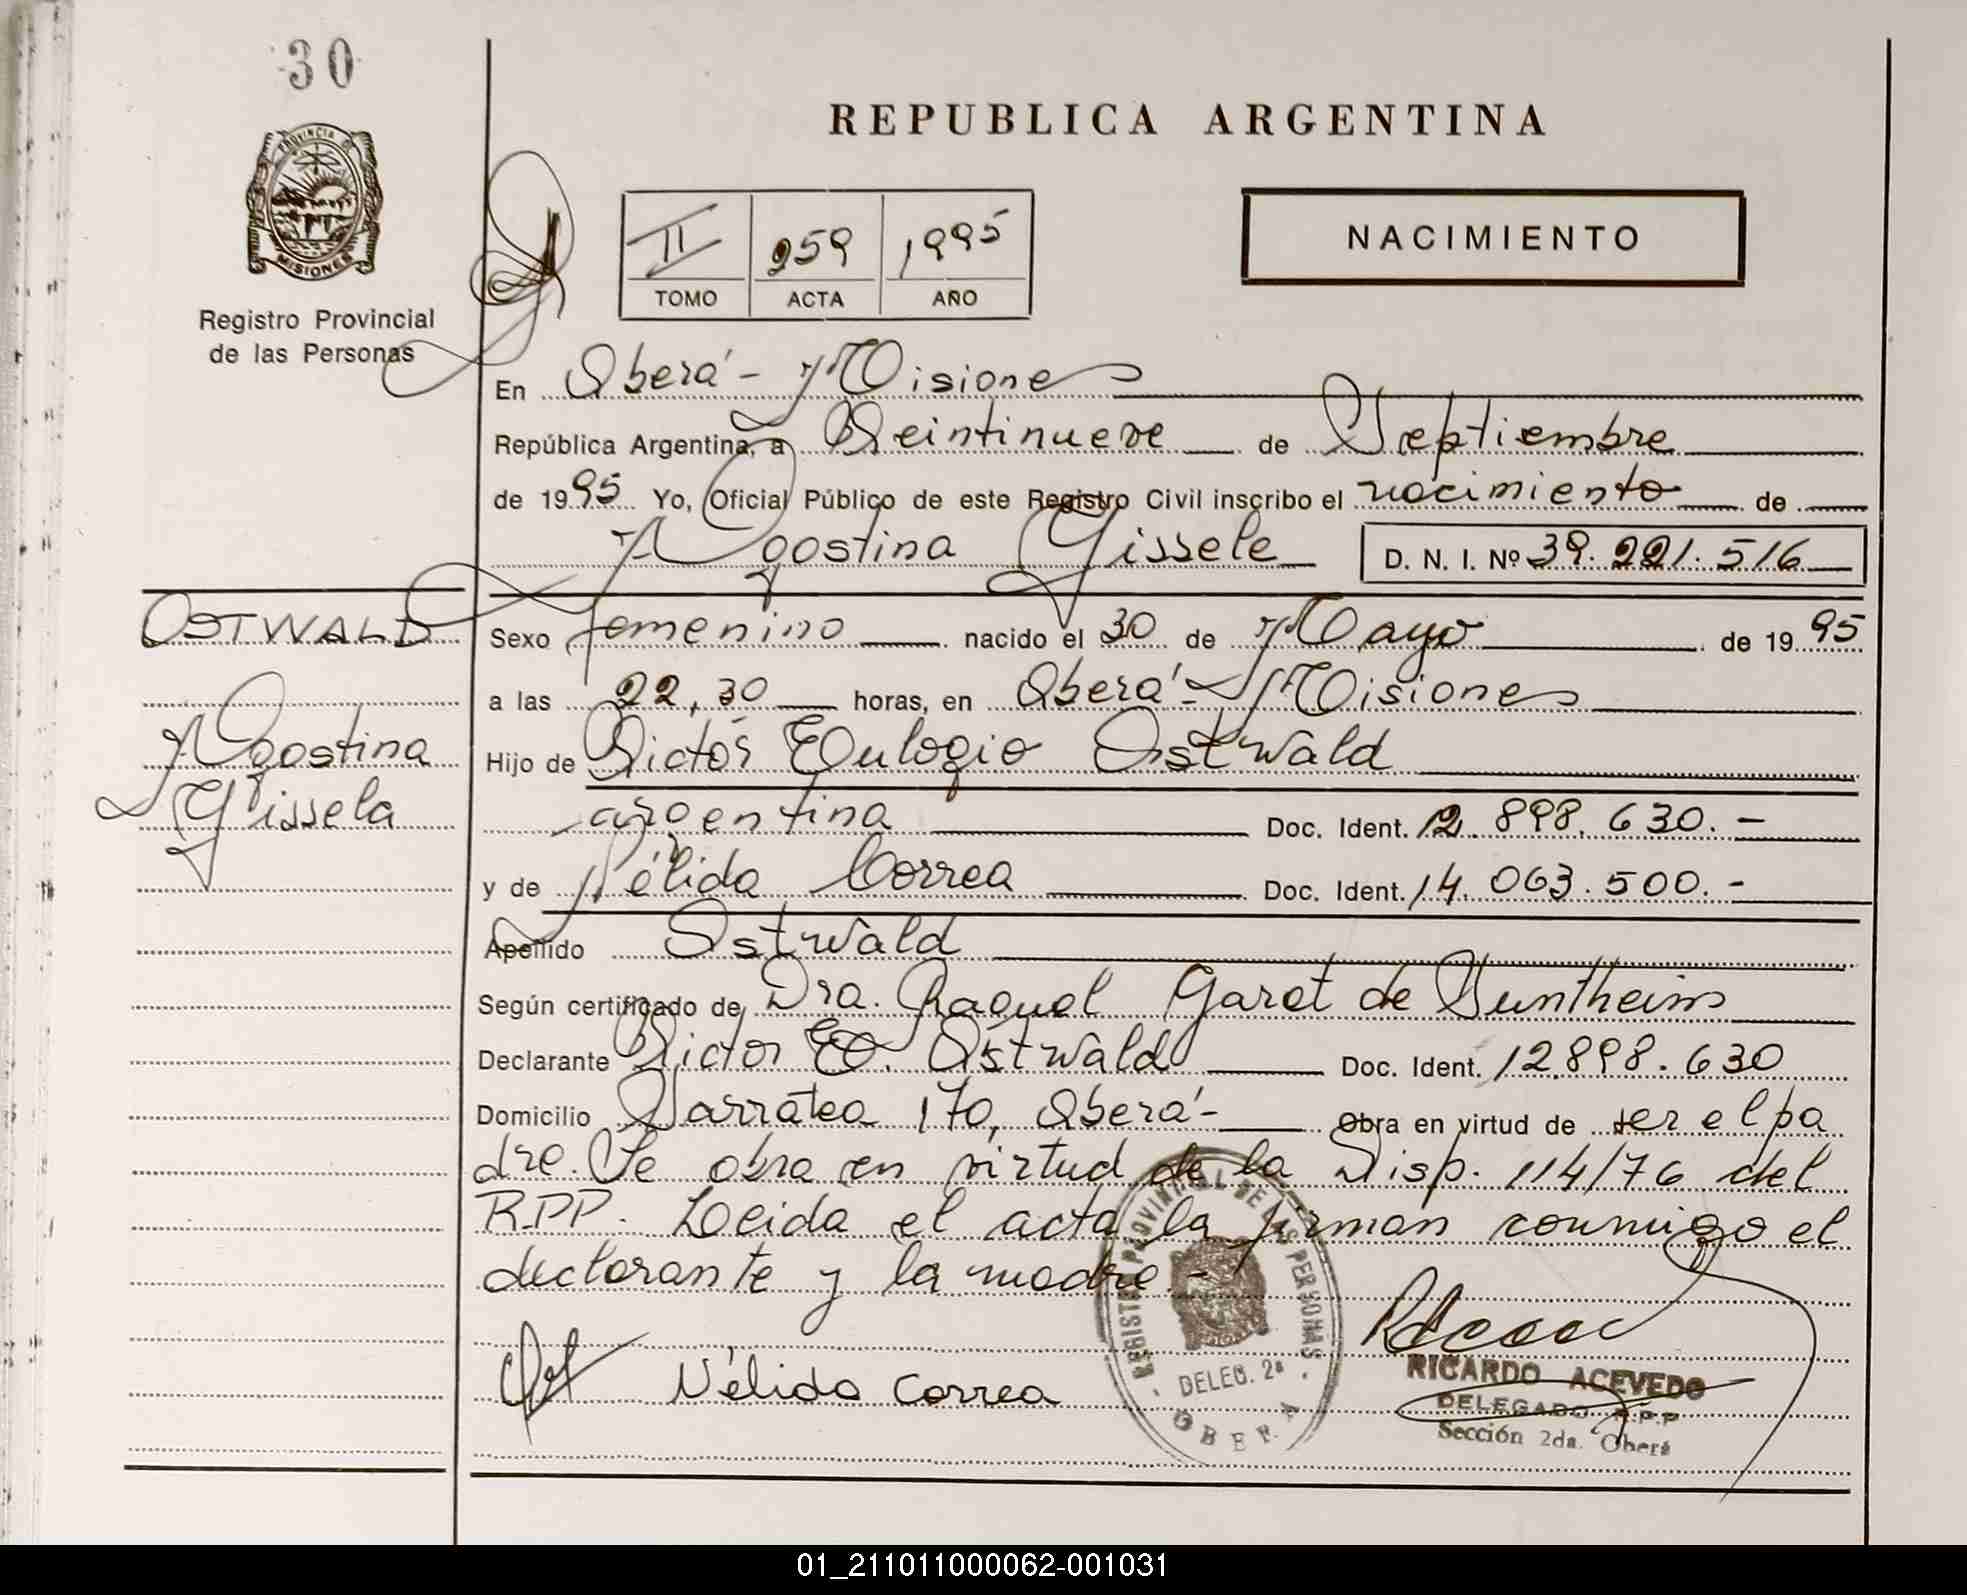 30
PROVINCIA D
MISIONES
Registro Provincial
de las Personas
REPUBLICA ARGENTINA
II 259 1995
TOMO ACTA AÑO
NACIMIENTO
En Oberá - Misiones
República Argentina, a Veintinueve de Septiembre
de 1995 Yo, Oficial Público de este Registro Civil inscribo el nacimiento de
Agostina Gissele D. N. I. Nº 39.221.516
OSTWALD
Agostina
Gissela
Sexo femenino nacido el 30 de Mayo de 1995
a las 22,30 horas, en Oberá - Misiones
Hijo de Victor Eulogio Ostwald
argentina Doc. Ident. 12.898.630.-
y de Nélida Correa Doc. Ident. 14.063.500.-
Apellido Ostwald
Según certificado de Dra. Raquel Garet de
Declarante Victor E. Ostwald Doc. Ident. 12.898.630
Domicilio Sarratea 170, Oberá - Obra en virtud de ser el pa
dre. Se obra en virtud de la Disp. 114/76 del
R.P.P. Leida el acta la firman conmigo el
declarante y la madre.-
Nélida Correa
REGISTRO PROVINCIAL DE LAS PERSONAS
DELEG. 2ª
OBERA
RICARDO ACEVEDO
DELEGADO R.P.P
Sección 2da. Oberá
01_211011000062-001031